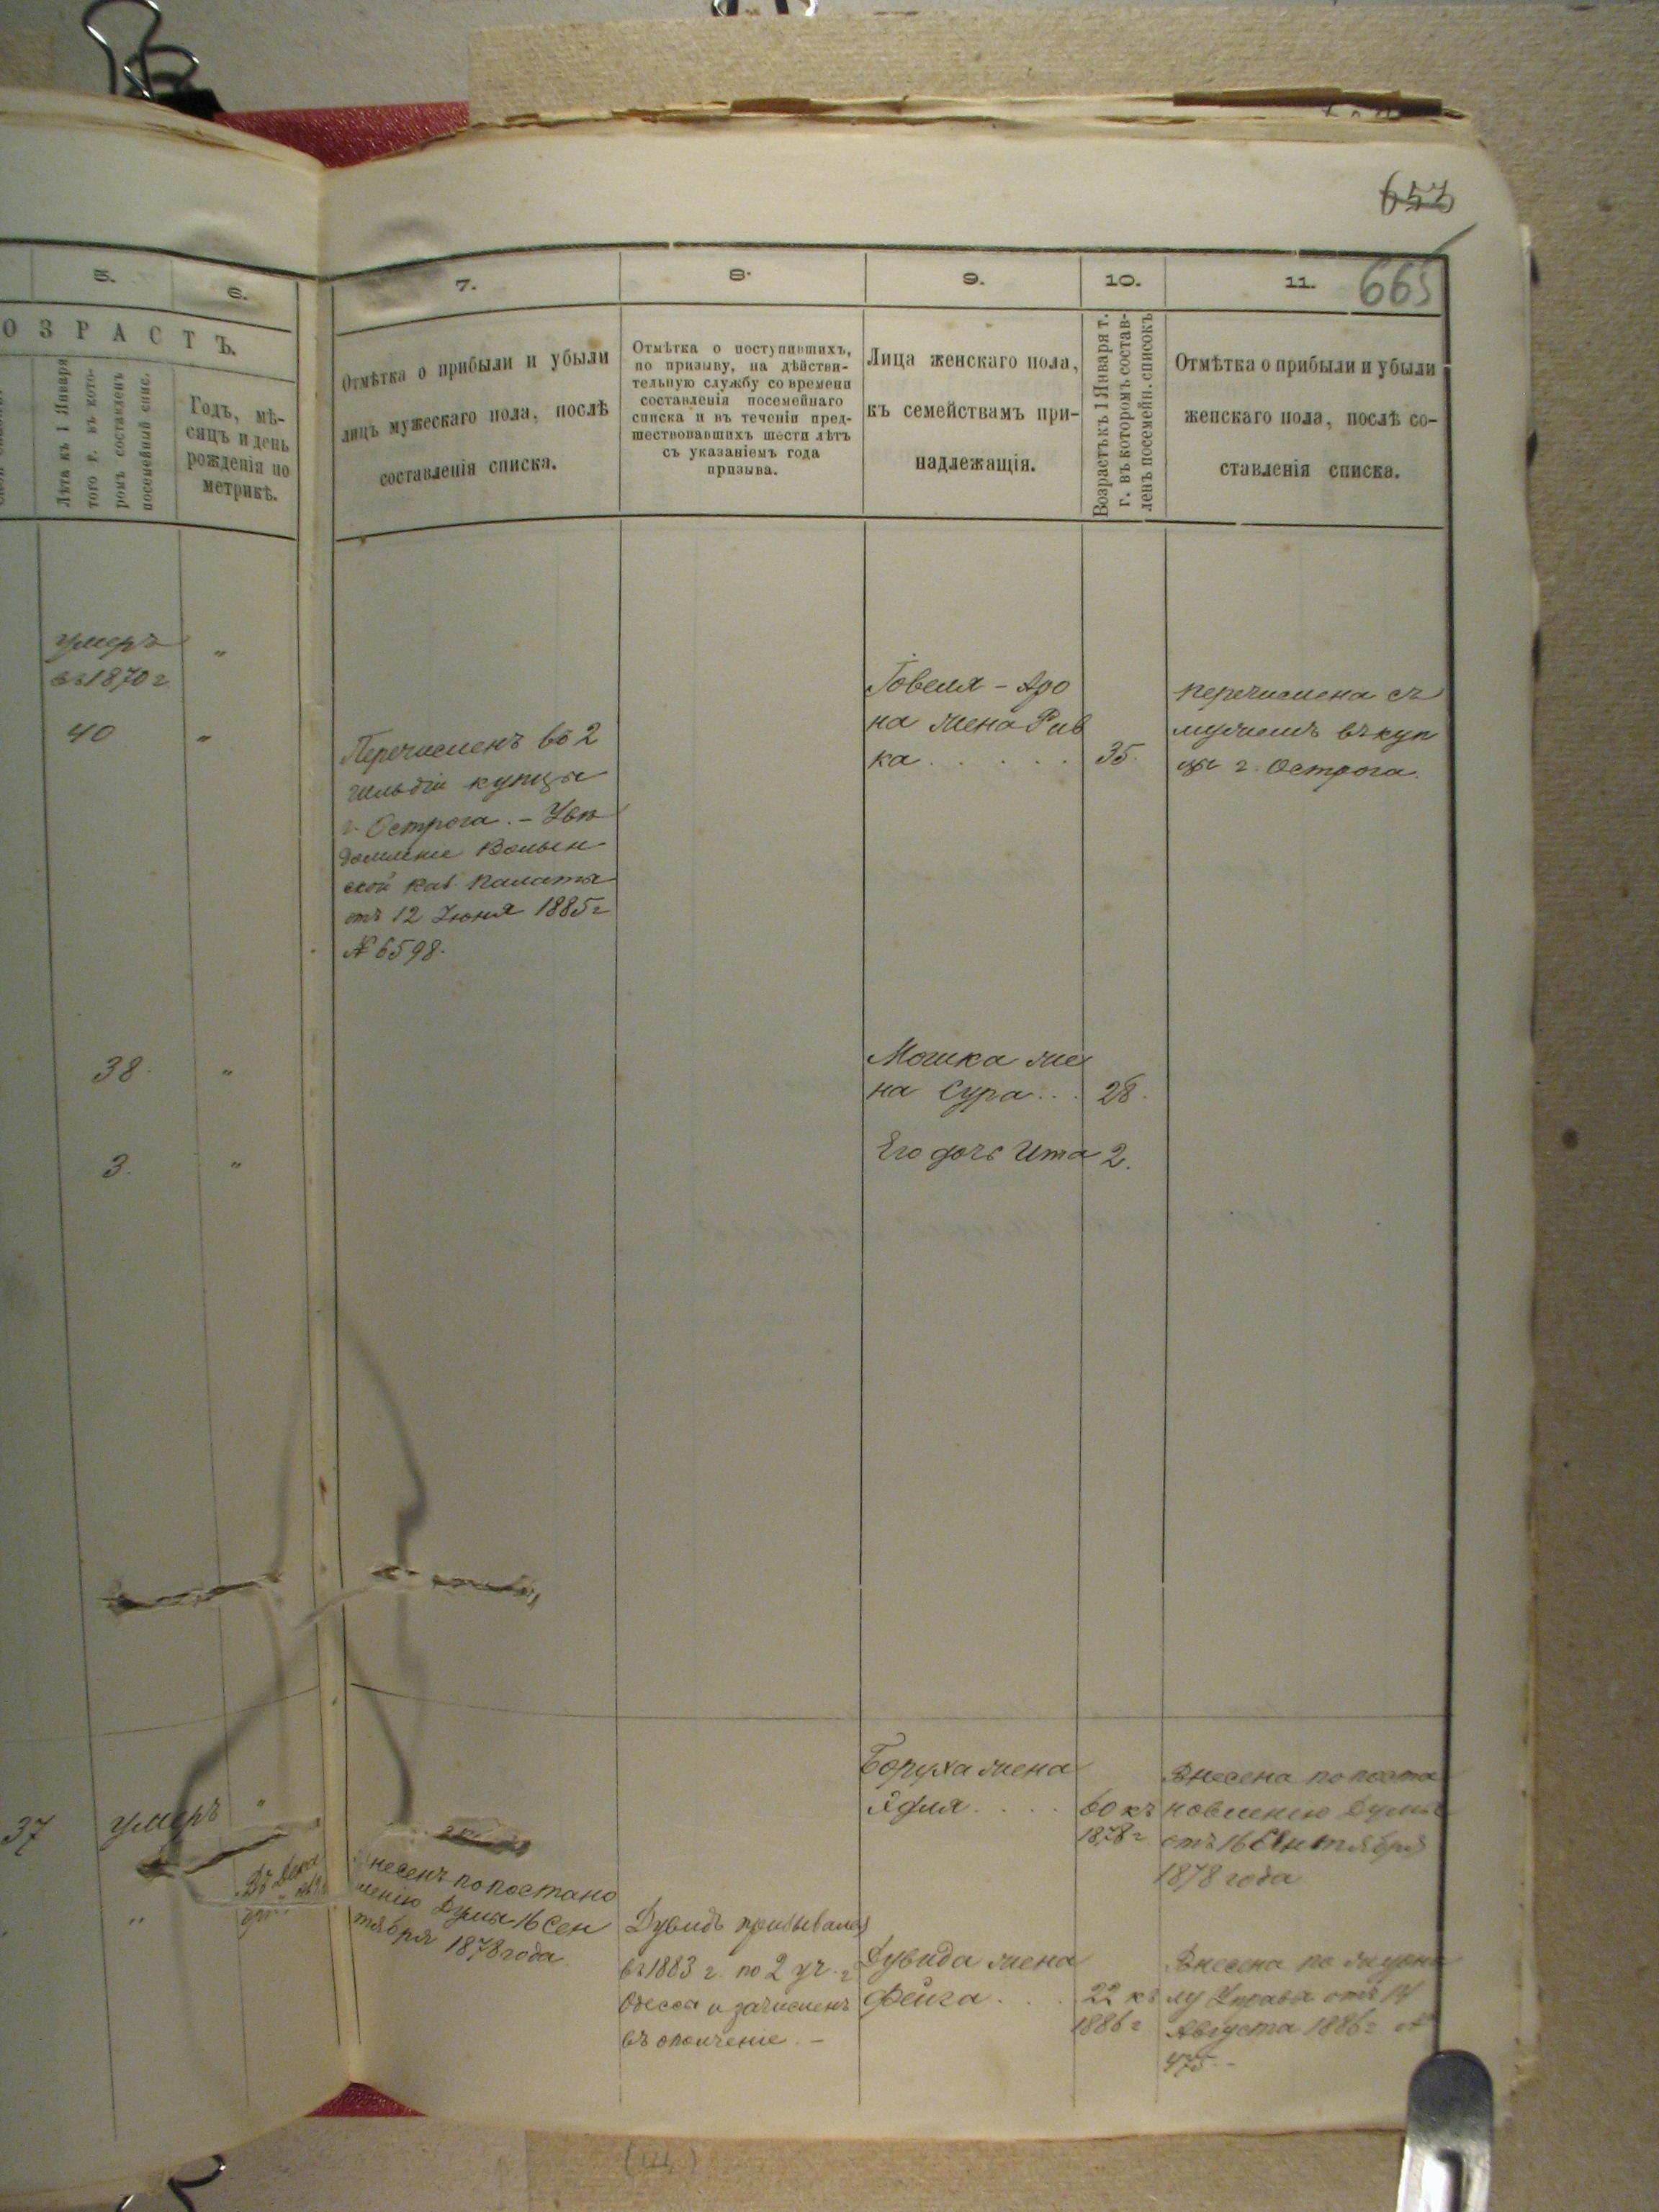 653
665
5.
6.
7.
8.
9.
10.
11.
ОЗРАСТЪ.
Лѣта къ 1 Января
того г. въ кото-
ромъ составленъ
посемейный спис.
Годъ, мѣ-
сяцъ и день
рожденія по
метрикѣ.
Отмѣтка о прибыли и убыли
лицъ мужескаго пола, послѣ
составленія списка.
Отмѣтка о поступившихъ,
по призыву, на дѣйстви-
тельную службу со времени
составленія посемейнаго
списка и въ теченіи пред-
шествовавшихъ шести лѣтъ
съ указаніемъ года
призыва.
Лица женскаго пола,
къ семействамъ при-
надлежащія.
Возрастъ къ 1 Января т.
г. въ которомъ состав-
ленъ посемейн. списокъ
Отмѣтка о прибыли и убыли
женскаго пола, послѣ со-
ставленія списка.
умеръ
въ 1870 г.
"
40
"
Перечисленъ во 2
гильдіи купцы
г. Острога. – Увѣ
домленіе Волын-
ской Каз. Палаты
отъ 12 Іюня 1885 г
№ 6598.
Говеля – Аро
на жена Рив
ка . . . . .
35.
перечислена съ
мужемъ въ куп
цы г. Острога.
38.
"
Мошка же
на Сура . . .
28.
3.
"
Его дочь Ита
2.
37
умеръ
"
Боруха жена
60 къ
1878 г
Внесена по поста
новленію Думы
отъ 16 Сентября
1878 года
"
несенъ по постано
ленію Думы 16 Сен
тября 1878 года
Дувидъ призывался
въ 1883 г. по 2 уч. г.
Одесса и зачисленъ
въ ополченіе. –
Дувида жена
Фейга . . .
22 къ
1886 г
Внесена по журна
лу Управы отъ 14
Августа 1886 г. №
475. –